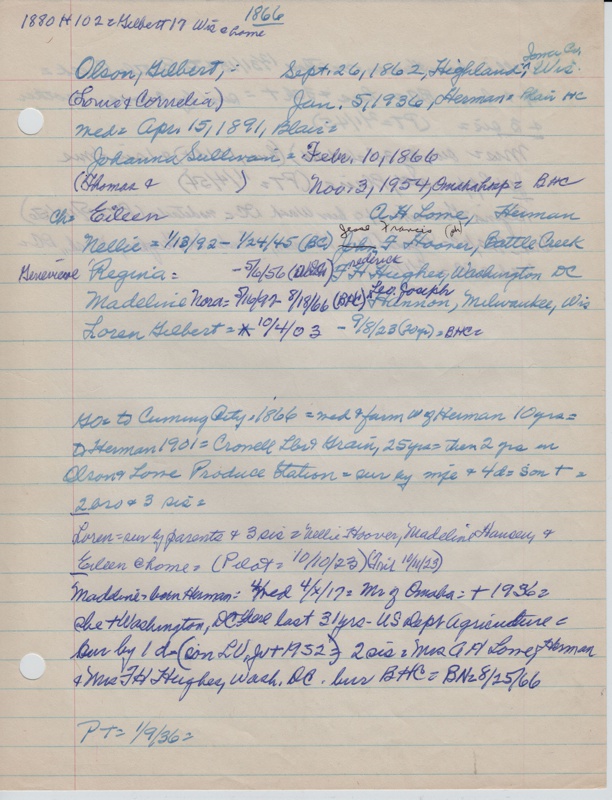 1866
1880 H 102 = Gilbert 17 Wis @ home
Olson, Gilbert, - Sept. 26, 1862, Highland, Iowa Co., Wis.
(Louis & Cornelia) Jan. 5, 1936, Herman = Blair HC
med = Apr. 15, 1891, Blair =
Johanna Sullivan = Febr. 10, 1866
(Thomas & ) Nov. 3, 1954, Omaha hosp = BHC
Ch = Eileen A H Lowe, Herman
Nellie = 1/13/92 - 1/24/45 (BC) Jesse Francis F Hoover, Battle Creek
Genevieve Regina = - 5/6/56 F. H Hughes, Washington DC
Madeline Nora = 5/16/97 - 8/18/66 (BHC) Leo Joseph Hannon, Milwaukee, Wis
Loren Gilbert = * 10/4/03 - 9/8/23 (20 yrs) = BHC =
to Cuming City, 1866 = med & farm W of Herman 10 yrs =
D Herman 1901 = Crowell Lbr & Grain, 25 yrs = then 2 yrs in
Olson & Lowe Produce Station = sur by wife & 4 d = son + =
2 bro & 3 sis =
Loren = sur by parents & 3 sis = Nellie Hoover, Madeline Hansen, &
Eileen @ home = (Pilot = 10/10/23)
Madeline = born Herman = med 4/x/17 = Mr of Omaha = + 1936 =
she + Washington, DC there last 31 yrs - US Dept Agriculture =
sur by 1 d = (son LV, Jr + 1952) 2 sis = Mrs A H Lowe, Herman
& Mrs F H Hughes, Wash. DC. bur BHC = BN = 8/25/66
PT = 1/9/36 =